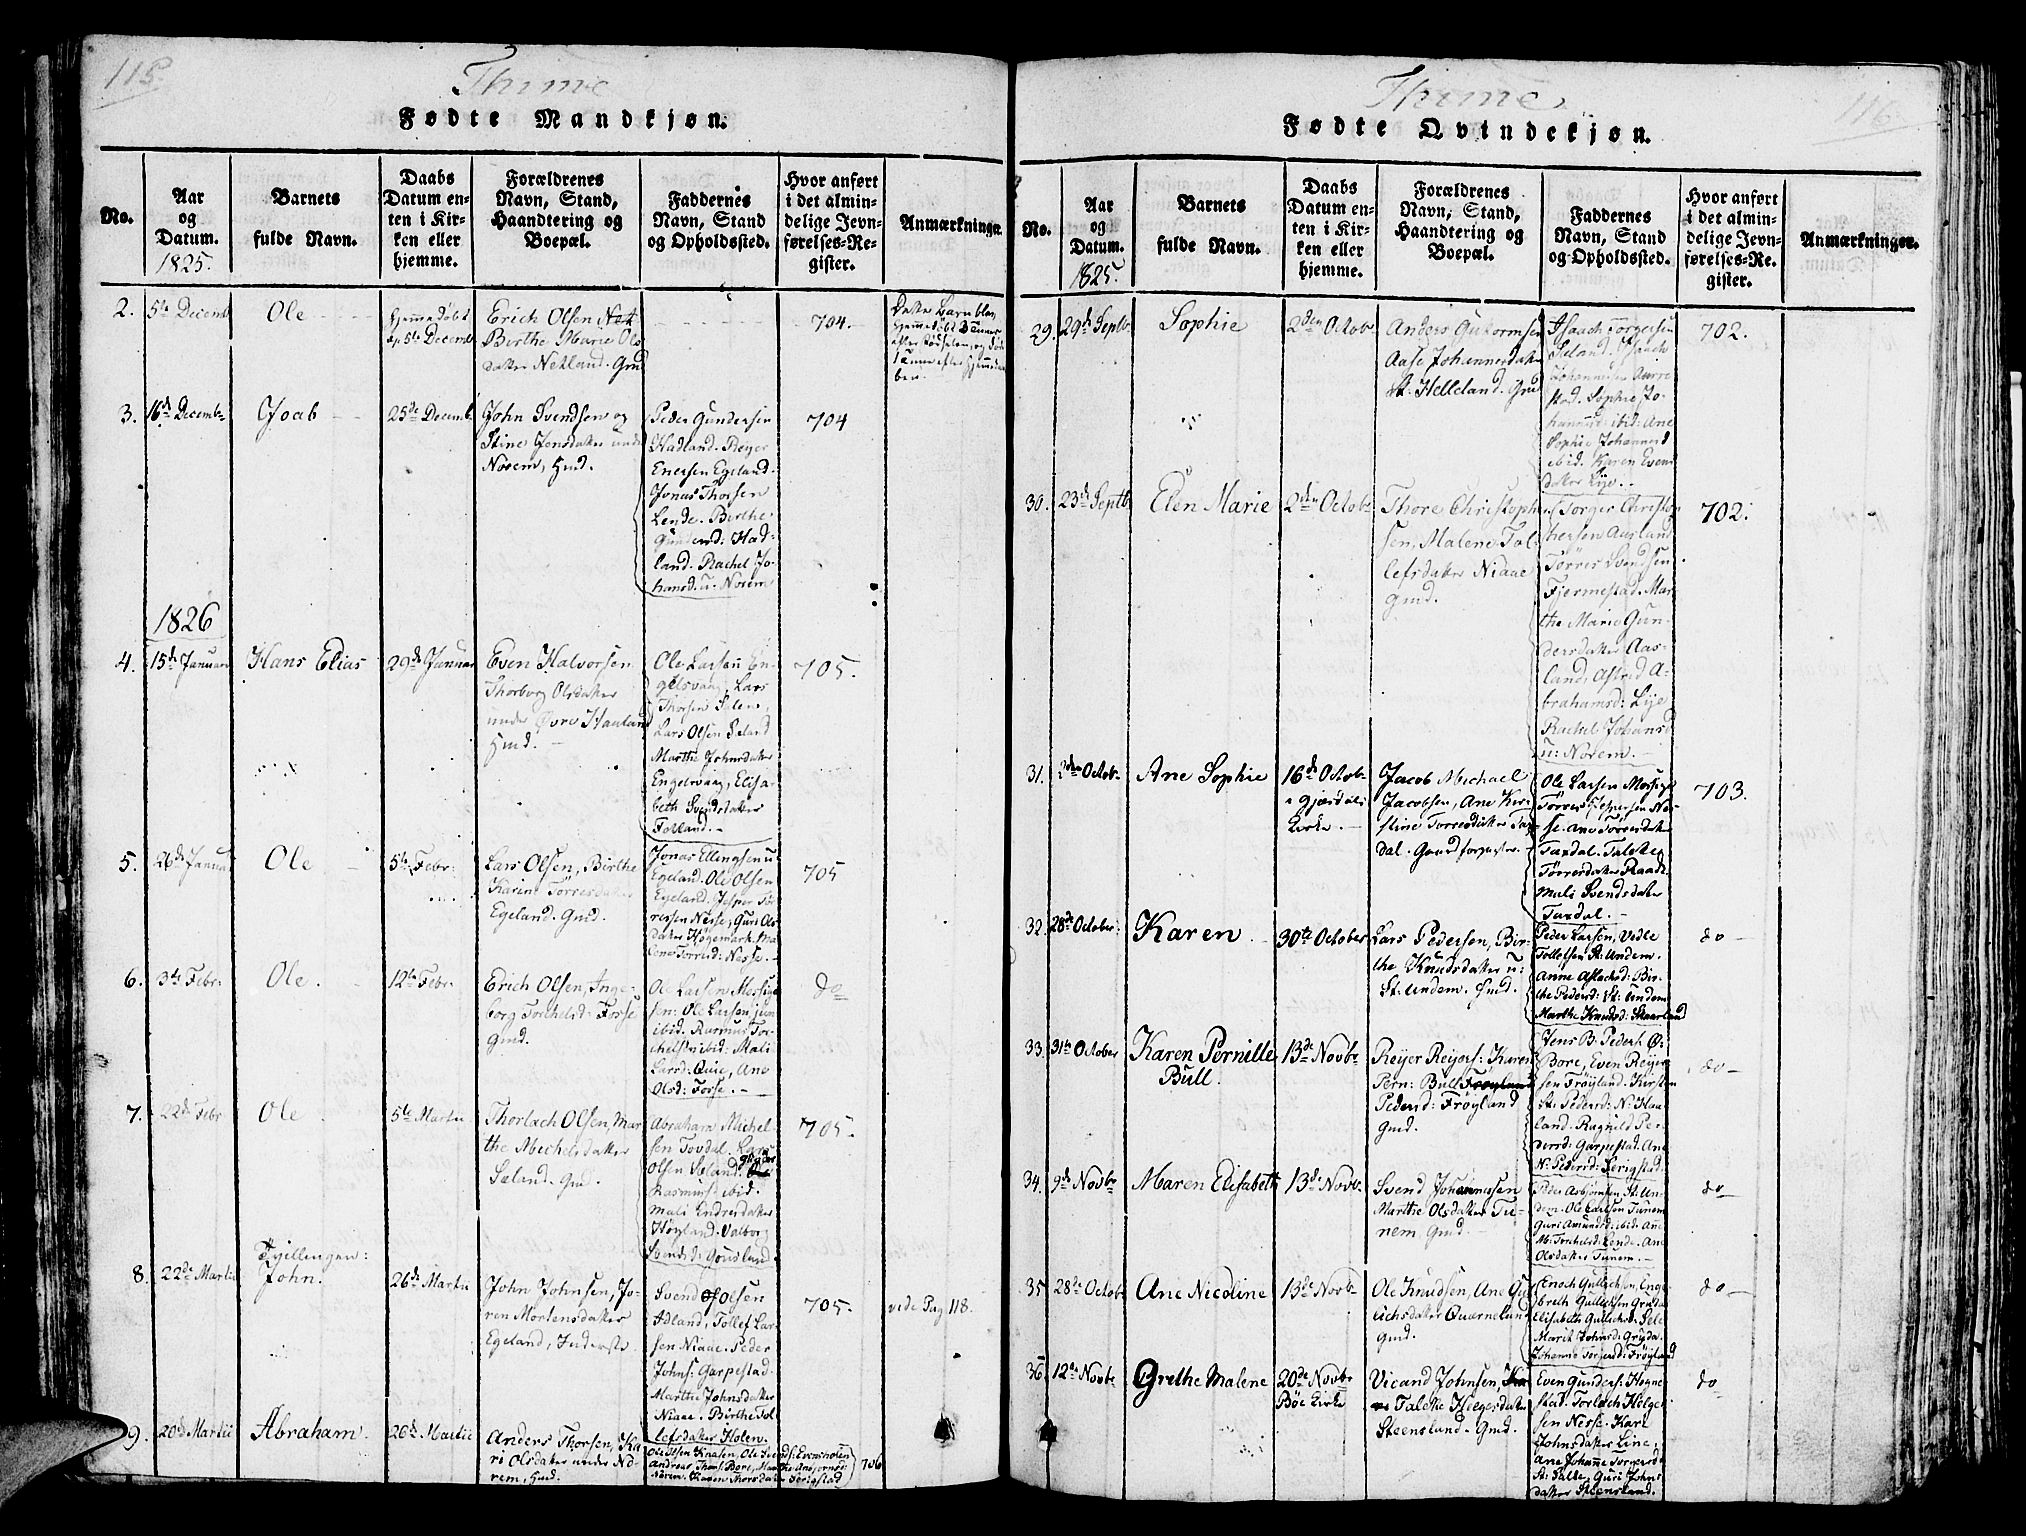 115.
Thime
Fødte Mandkjøn.
No.
Aar
og
Datum.
1825.
Barnets
fulde Navn.
Daabs
Datum en-
ten i Kir-
ken eller
hjemme.
Forældrenes
Navn, Stand,
Haandtering og
Boepæl.
Faddernes
Navn, Stand
og Opholdssted.
Hvor anført
i det almin-
delige Jevn-
førelses-Re-
gister.
Anmærkninger.
2.
5te Decemb
Ole
Hjemmedøbt
5te Decemb
Erich Olsen
Birthe Marie Ols
datter Netland. Gmd
704.
3.
16de Decembr
Joab
25de Decemb
John Svendsen og
Stine Jensdatter under
Norem, Hmd.
Peder Gundersen
Hadland. Reyer
Enersen Egeland.
Jonas Thorsen
Lende. Birthe
Gundersd: Had-
land. Rachel Jo-
hansd. u: Norem
704
1826
4.
15de Januari
Hans Elias
29de Januar
Even Halvorsen
Thorborg Olsdatter
under Øvre Haaland
Hmd.
Ole Larsen En-
gelsvaag, Lars
Thorsen Selene,
Lars Olsen Seland
Marthe Johnsdatter
Engelsvaag, Elisa-
beth Svendsdatter
Folland.
705.
5.
26de Januar
Ole
5te Febr:
Lars Olsen, Birthe
Karine Tørresdatter
Egeland. Gmd.
Jonas Ellingsen u
Egeland. Ole Olsen
Egeland. Jesper Tør
ressen Nesse, Guri Ols
datter Høgemark. Ma
lene Torrisd: Nesse.
705
6.
3die Febr:
Ole.
12te Febr.
Erich Olsen, Inge-
borg Torchelsd: Fosse
Gmd.
Ole Larsen Mossige
sen: Ole Larsen jun
ibid. Rasmus Tor-
chelsen ibid: Mali
Larsd: Qvie, Ane
Olsd: Fosse.
do
7.
22de Febr
Ole
5te Martii
Thorlach Olsen, Mar
the Michelsdatter
Sæland. Gmd.
Abraham Michel
sen Tovdal. Lars
Olsen Sæland.
Rasmus ibid.
Mali Endresdatter
Høyland. Valborg
Svendsd: Goudland.
705.
8.
22de Martii
Tvillinger:
John.
26de Martii
John Johnsen, Jo-
ren Mortensdatter
Egeland, Inderste.
Svend Olsen
Adland, Tollef Lar-
sen Niaae. Peder
Johns: Garpestad.
Marthe Johnsdatter
Niaae. Birthe Tol
lefsdatter Holen.
705.
vide Pag 118.
9.
20de Martii
Abraham.
26de Martii
Anders Thorsen, Ka
ri Olsdatter under No
rem, Hmd.
706
116.
Thime
Fødte Qvindekjøn.
No.
Aar
og
Datum.
1825.
Barnets
fulde Navn.
Daabs
Datum en-
ten i Kir-
ken eller
hjemme.
Forældrenes
Navn, Stand,
Haandtering og
Boepæl.
Faddernes
Navn, Stand
og Opholdssted.
Hvor anført
i det almin-
delige Jevn-
førelses-Re-
gister.
Anmærkninger.
29.
29de Septb:
Sophie
2den Octob:
Anders Gutormsen
Aase Johannesdatter
St. Helleland. Gmd
Isaach Torgersen
Seland. Isaach
Johannesen Aarre
stad. Sophie Jo-
hannesd: ibid: Ane
Sophie Johannesd
ibid. Karen Evens
datter Lye.
702.
30.
23de Septb
Elen Marie
2den Octob:
Thore Christopher
sen, Malene Tol-
lefsdatter Niaae
Gmd.
Torger Christop
hersen Aasland
Tørres Svendsen
Fjermestad. Mar
the Marie Gun-
dersdatter Aas-
land, Astrid A-
brahamsd: Lye
Rachel Johansd
u: Norem.
702.
31.
2den Octob:
Ane Sophie
16de Octob:
i Gjæsdals
Kirke.
Jacob Michael
Jacobsen, Ane Kir-
stine Torresdatter Tax
dal. Gaardforpagter.
Ole Larsen Mossige
Tørres Jespersen Nes-
se. Ane Torresdatter
Taxdal. Talette
Tørresdatter Raad.
Mali Svendsdatter
Taxdal.
703.
32.
28de October
Karen
30te October
Lars Pedersen, Bir-
the Knudsdatter u:
St: Undem. Hmd.
Peder Larsen, Vedle
Tollefsen St: Undem.
Anne Aslachsd: Bir-
the Pedersd: St: Undem
Marthe Knudsd: Skaarland
do
33.
31te October
Karen Pernille
Bull.
13de Novbr
Reyer Reyers: Karen
Pern: Bull
Pedersd: Frøyland
Gmd.
Jens B. Peders: Ø:
Bore, Even Reyer-
sen Frøyland. Kirsten
St: Pedersd: N: Haa-
land. Ragnild Pe-
dersd: Garpestad. Ane
N: Pedersd: Serigstad.
do
34.
9de Novbr
Maren Elisabeth
13de Novb.
Svend Johannesen
Marthe Olsdatter Tu-
nem Gmd.
Peder Asbjørnsen St: Un-
dem. Ole Carlsen Tunem
Guri Amundsd: ibid. Ane
M: Torchelsd: Lende. Ane
Olsdatter Tunem.
do
35
28de Octob:
Ane Nicoline
13de Novb
Ole Knudsen, Ane Gul
lichsdatter Qværneland
Gmd.
Enoch Gullichsen, Enge
breth Gullichsen Gryda
Elisabeth Gullichsd: Sele
Marit Johnsd: Gryda.
Johanne Torgersd: Frøyland
do
36.
12te Novbr
Grethe Malene
20de Novbr
Bøe Kirke
Vicand Johnsen,
Taleke Helgesdatter
Steensland. Gmd.
Even Gunders: Hogne
stad. Torlach Helge
sen Nesse. Kari
Johnsdatter Line,
Ane Johanne Torgersd
St: Salte, Guri Johns
datter Steensland.
do